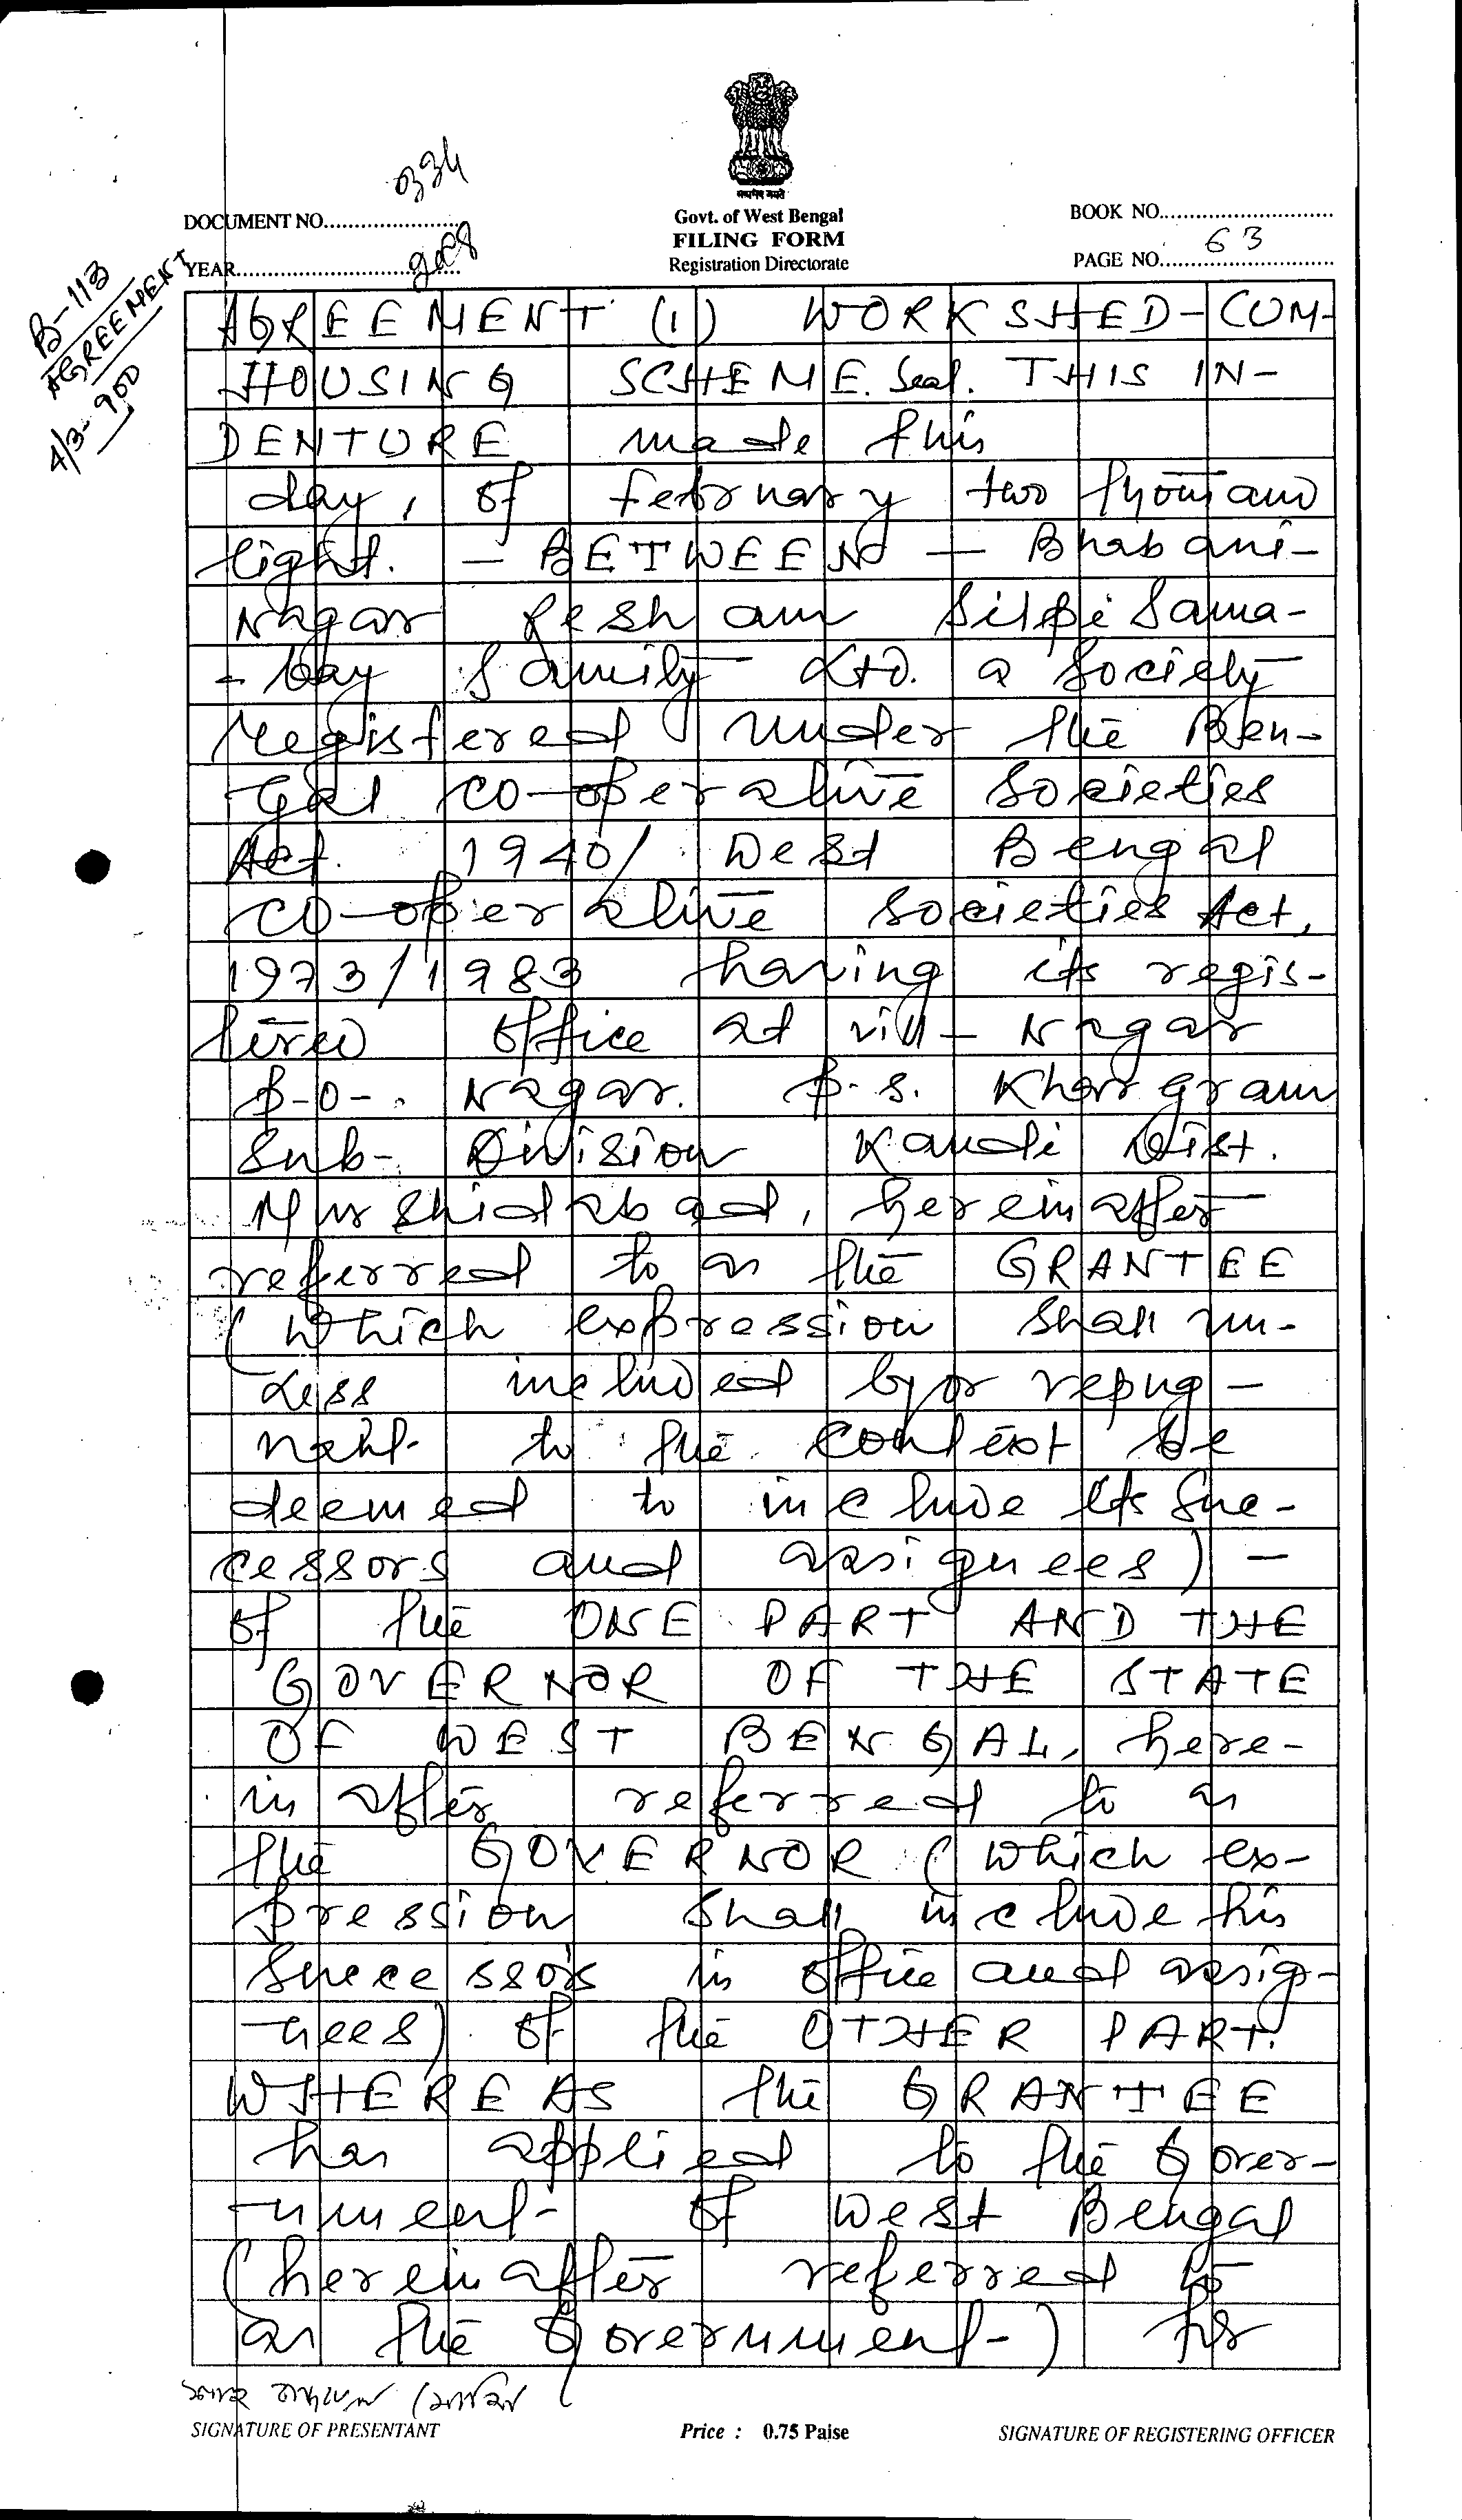 सत्यमेव जयते
DOCUMENT NO.
YEAR
Govt. of West Bengal
FILING FORM
Registration Directorate
BOOK NO.
PAGE NO. 63
B-113
AGREEMENT
4/3-900
AGREEMENT (1) WORKSHED-CUM-
HOUSING SCHEME. Seal. THIS IN-
DENTURE made this
day, of February two thousand
eight. — BETWEEN — Bhabani-
Nagar Resham Silpi Sama-
-bay Samity Ltd. a Society
registered under the Ben-
gal co-operative Societies
Act. 1940/ West Bengal
co-operative Societies Act,
1973/1983 having its regis-
tered office at vill- Nagar
P-O-. Nagar. P.S. Khargram
Sub- Division Kandi Dist.
Murshidabad, hereinafter
referred to as the GRANTEE
(which expression shall un-
less included by or repug-
nant to the context be
deemed to include its suc-
cessors and assignees) —
of the ONE PART AND THE
GOVERNOR OF THE STATE
OF WEST BENGAL, here-
inafter referred to as
the GOVERNOR (which ex-
pression shall include his
successors in office and assig-
-nees) of the OTHER PART.
WHEREAS the GRANTEE
has applied to the Gover-
-nment of West Bengal
(hereinafter referred to
as the Government) for
SIGNATURE OF PRESENTANT
Price : 0.75 Paise
SIGNATURE OF REGISTERING OFFICER